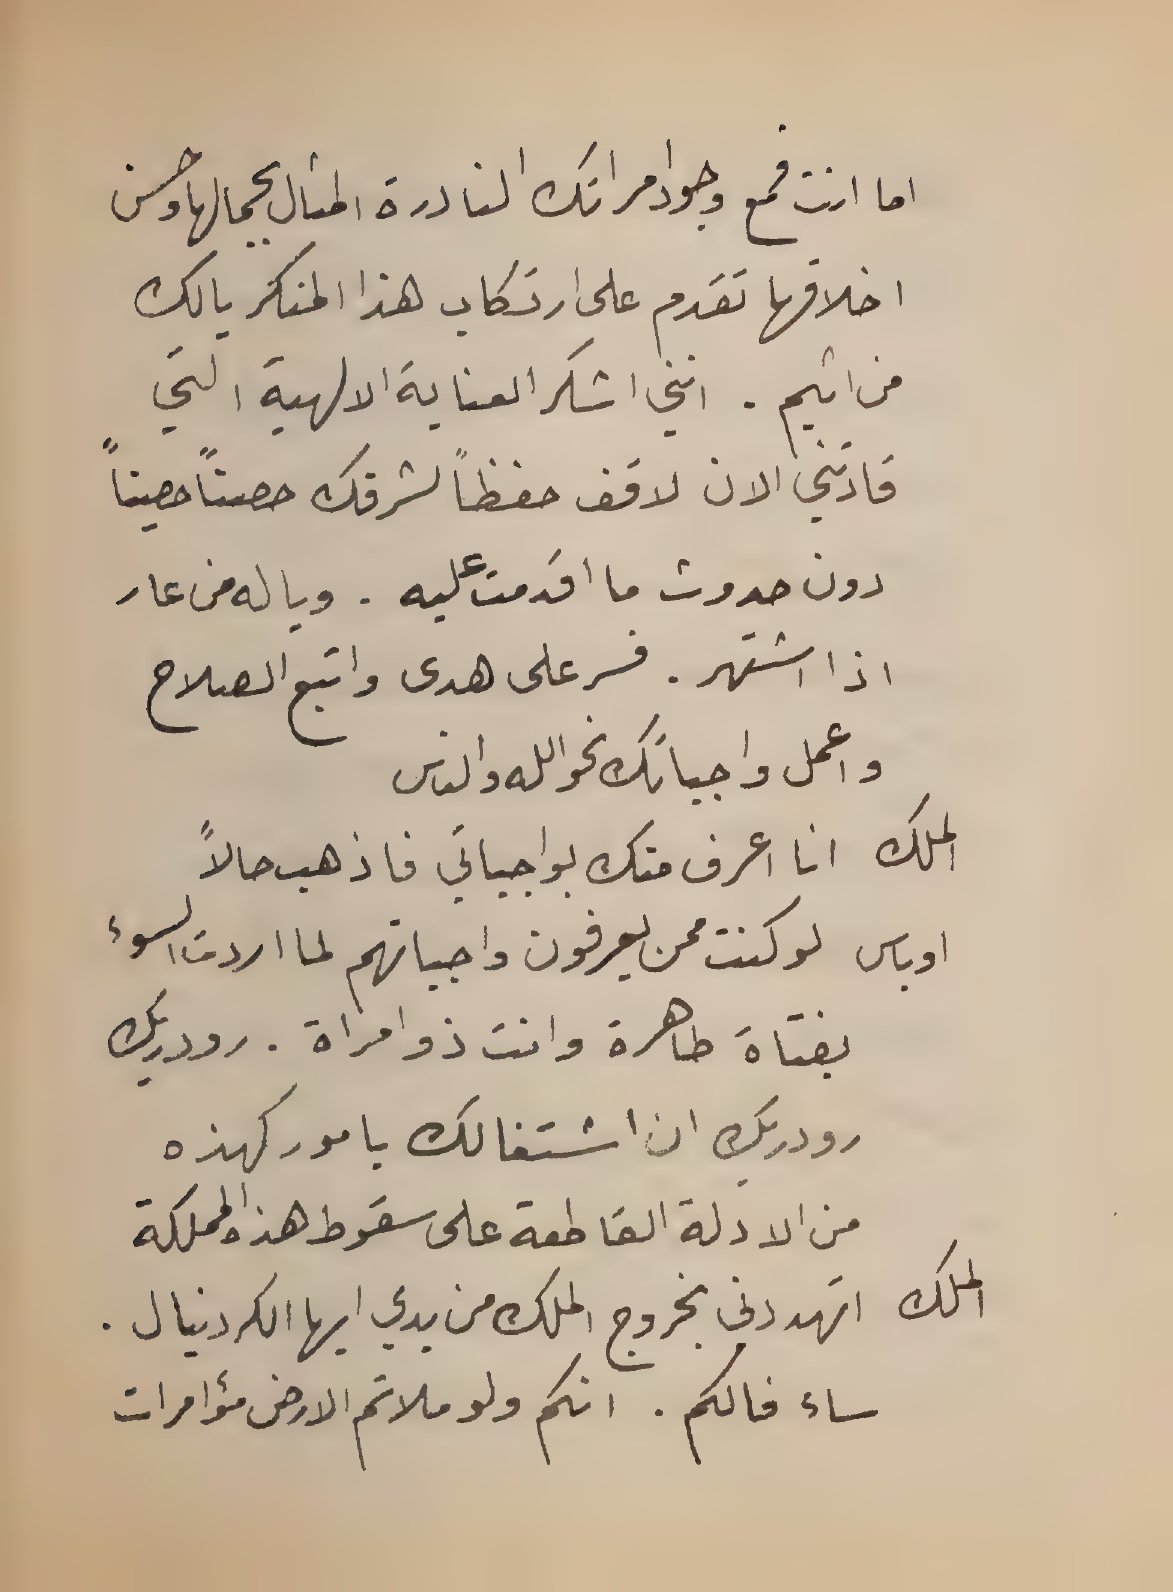 اما انت فمع وجود امراتك النادرة المثال بجمالها وحسن
اخلاقها تقدم على ارتكاب هذا المنكر يالك
من اثيم . انني اشكر العناية الالهية التي
قادتني الان لاقف حفظاً لشرفك حصناً حصيناً
دون حدوث ما اقدمت عليه . وياله من عار
اذا اشتهر . فسر على هدى واتبع الصلاح
واعمل واجباتك نحو الله والناس
الملك انا اعرف منك بواجباتي فاذهب حالاً
اوباس لو كنت ممن يعرفون واجباتهم لما اردت السوء
بفتاة طاهرة وانت ذو امراة . رودريك
رودريك ان اشتغالك بامور كهذه
من الادلة القاطعة على سقوط هذه المملكة
الملك اتهددني بخروج الملك من يدي ايها الكردينال .
ساء فالكم . انكم ولو ملاتم الارض مؤامرات